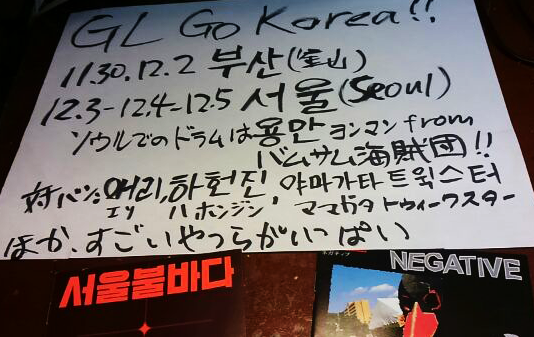 GL Go Korea!!
11.30.12.2 부산(釜山)
12.3-12.4-12.5 서울(Seoul)
ソウルでのドラムは용만 ヨンマン from
バムサム海賊団!!
対バン:애리,하헌진, 야마가타트윅스터
エリ ハホンジン, ママガタトゥィークスター
ほか、すごいやつらがいっぱい
서울불바다
ネガティブ
NEGATIVE